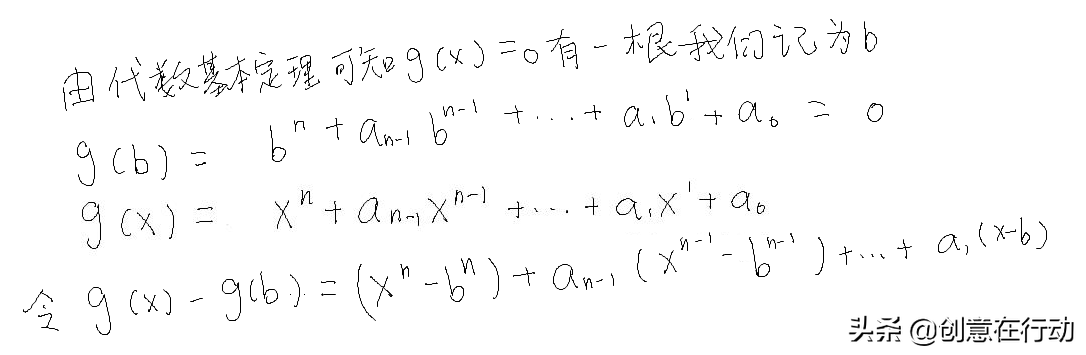 由代数基本定理可知g(x)=0有一根我们记为b
g(b) = bⁿ + aₙ₋₁ bⁿ⁻¹ + ... + a₁b¹ + a₀ = 0
g(x) = xⁿ + aₙ₋₁xⁿ⁻¹ + ... + a₁x¹ + a₀
令 g(x) - g(b) = (xⁿ - bⁿ) + aₙ₋₁ (xⁿ⁻¹ - bⁿ⁻¹) + ... + a₁(x-b)
头条 @创意在行动